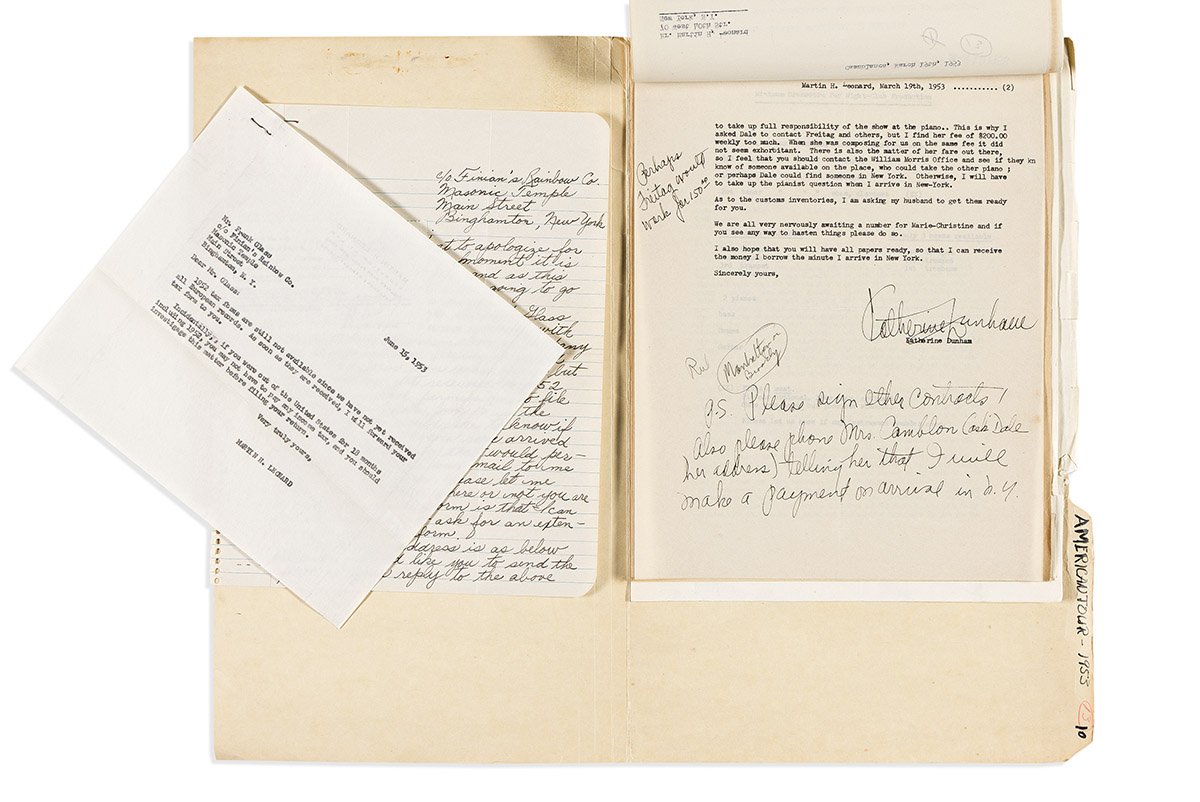 June 15, 1953
Mr. Frank Glass
c/o Finian's Rainbow Co.
Masonic Temple
Main Street
Binghamton, N. Y.
Dear Mr. Glass:
1952 tax forms are still not available since we have not yet received
all European records. As soon as they are received, I will forward your
tax form to you.
Incidentally, if you were out of the United States for 18 months
including 1952, you may not have to pay any income tax, and you should
investigage this matter before filing your return.
Very truly yours,
MARTIN H. LEONARD
c/o Finian's Rainbow Co.
Masonic Temple
Main Street
Binghamton, New York
to apologize for
moment it is
and as this
going to go
Glass
with
any
but
52
to file
the
know if
arrived
would per-
mail to me
let me
here or not you are
form is that I can
ask for an exten-
form.
address is as below
like you to send the
reply to the above
New York, N.Y.
70 West 10th Str.
Mr. Martin H.
March 19th, 1953
Martin H. Leonard, March 19th, 1953 .......... (2)
to take up full responsibility of the show at the piano.. This is why I
asked Dale to contact Freitag and others, but I find her fee of $200.00
weekly too much. When she was composing for us on the same fee it did
not seem exhorbitant. There is also the matter of her fare out there,
so I feel that you should contact the William Morris Office and see if they kn
know of someone available on the place, who could take the other piano ;
or perhaps Dale could find someone in New York. Otherwise, I will have
to take up the pianist question when I arrive in New-York.
Perhaps
Freitag would
work for 150.00
As to the customs inventories, I am asking my husband to get them ready
for you.
We are all very nervously awaiting a number for Marie-Christine and if
you see any way to hasten things please do so.
I also hope that you will have all papers ready, so that I can receive
the money I borrow the minute I arrive in New York.
Sincerely yours,
Katherine Dunham
Katherine Dunham
Manhattan or
P.S. Please sign other contracts!
Also please phone Mrs. Camblon (ask Dale
her address) telling her that I will
make a payment on arrival in N.Y.
AMERICAN TOUR - 1953
10